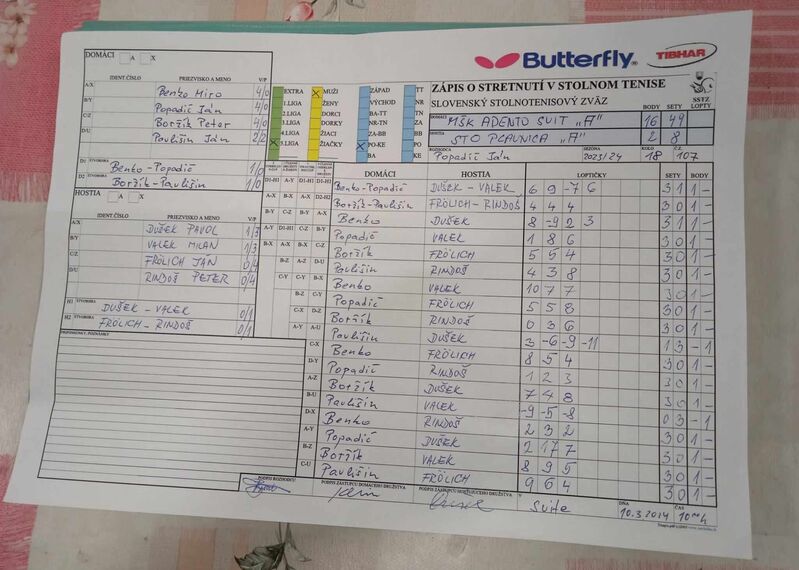 DOMÁCI A X
IDENT.ČÍSLO PRIEZVISKO A MENO V/P
A/X Benko Miro 4/0
B/Y Popadič Ján 4/0
C/Z Boržík Peter 4/0
D/U Pavlišin Ján 2/2
D1 ŠTVORHRA Benko-Popadič 1/0
D2 ŠTVORHRA Boržík-Pavlišin 1/0
HOSTIA A X
IDENT.ČÍSLO PRIEZVISKO A MENO V/P
A/X DUŠEK PAVOL 1/3
B/Y VALEK MILAN 1/3
C/Z FRÖLICH JÁN 0/4
D/U RINDOŠ PETER 0/4
H1 ŠTVORHRA DUŠEK - VALEK 0/1
H2 ŠTVORHRA FRÖLICH - RINDOŠ 0/1
PRIPOMIENKY, POZNÁMKY
Butterfly TIBHAR
ZÁPIS O STRETNUTÍ V STOLNOM TENISE
SLOVENSKÝ STOLNOTENISOVÝ ZVÄZ BODY SETY SSTZ LOPTY
EXTRA MUŽI ZÁPAD TT
1.LIGA ŽENY VÝCHOD NR
2.LIGA DORCI BA-TT TN
3.LIGA DORKY NR-TN ZA
4.LIGA ŽIACI ZA-BB BB
5.LIGA ŽIAČKY PO-KE PO
BA KE
DOMÁCI MŠK ADENTO SVIT "A" 16 49
HOSTIA STO PLAVNICA "A" 2 8
ROZHODCA Popadič Ján SEZÓNA 2023/24 KOLO 18 Č.Z. 107
DOMÁCI HOSTIA LOPTIČKY SETY BODY
D1-H1 A-Y D1-H1 D1-H1 Benko-Popadič DUŠEK - VALEK 6 9 -7 6 3 1 1 -
A-X B-X A-X D2-H2 Boržík-Pavlišin FRÖLICH - RINDOŠ 4 4 4 3 0 1 -
Benko DUŠEK 8 -9 2 3 3 1 1 -
Popadič VALEK 1 8 6 3 0 1 -
Boržík FRÖLICH 5 5 4 3 0 1 -
Pavlišin RINDOŠ 4 3 8 3 0 1 -
Benko VALEK 10 7 7 3 0 1 -
Popadič FRÖLICH 5 5 8 3 0 1 -
Boržík RINDOŠ 0 3 6 3 0 1 -
C-X Pavlišin DUŠEK 3 -6 -9 -11 1 3 - 1
D-Y Benko FRÖLICH 8 5 4 3 0 1 -
A-Z Popadič RINDOŠ 1 2 3 3 0 1 -
B-U Boržík DUŠEK 7 4 8 3 0 1 -
D-X Pavlišin VALEK -9 -5 -8 0 3 - 1
A-Y Benko RINDOŠ 2 3 2 3 0 1 -
B-Z Popadič DUŠEK 2 17 7 3 0 1 -
C-U Boržík VALEK 8 9 5 3 0 1 -
Pavlišin FRÖLICH 9 6 4 3 0 1 -
PODPIS ROZHODCU PODPIS ZÁSTUPCU DOMÁCEHO DRUŽSTVA PODPIS ZÁSTUPCU HOSŤUJÚCEHO DRUŽSTVA V Svite DŇA 10.3.2024 ČAS 10 h